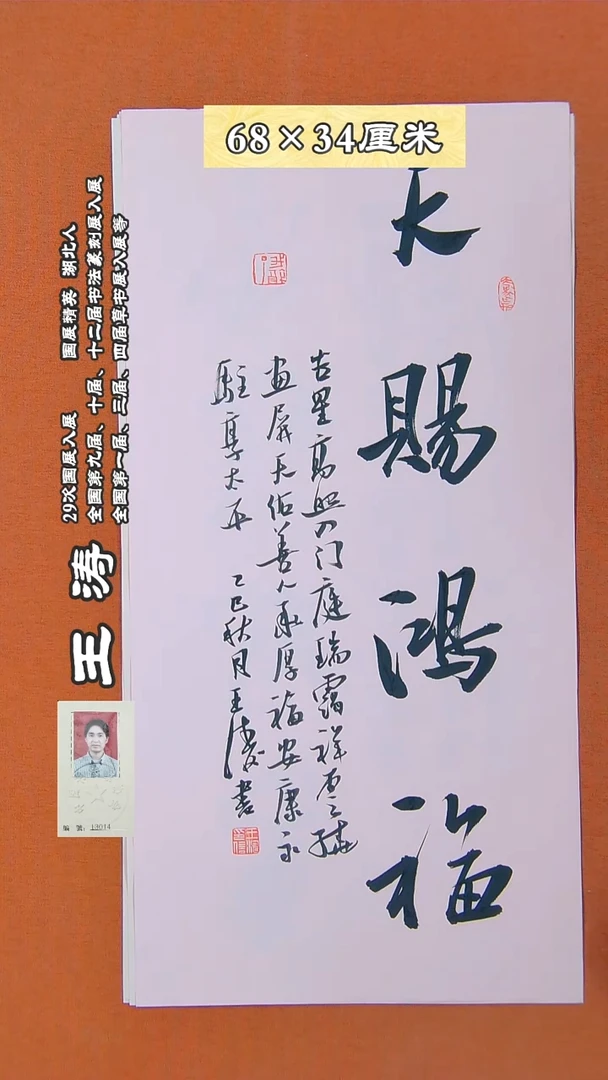 68×34厘米
天賜鴻福
吉星高照门庭瑞靄祥雲繞
画屏天佑善人承厚福安康永
駐享太平 乙巳秋月王涛書
王涛
29次国展入展 国展精英 湖北人
全国第九届、十届、十二届书法篆刻展入展
全国第一届、三届、四届草书展入展等
编号: 13014